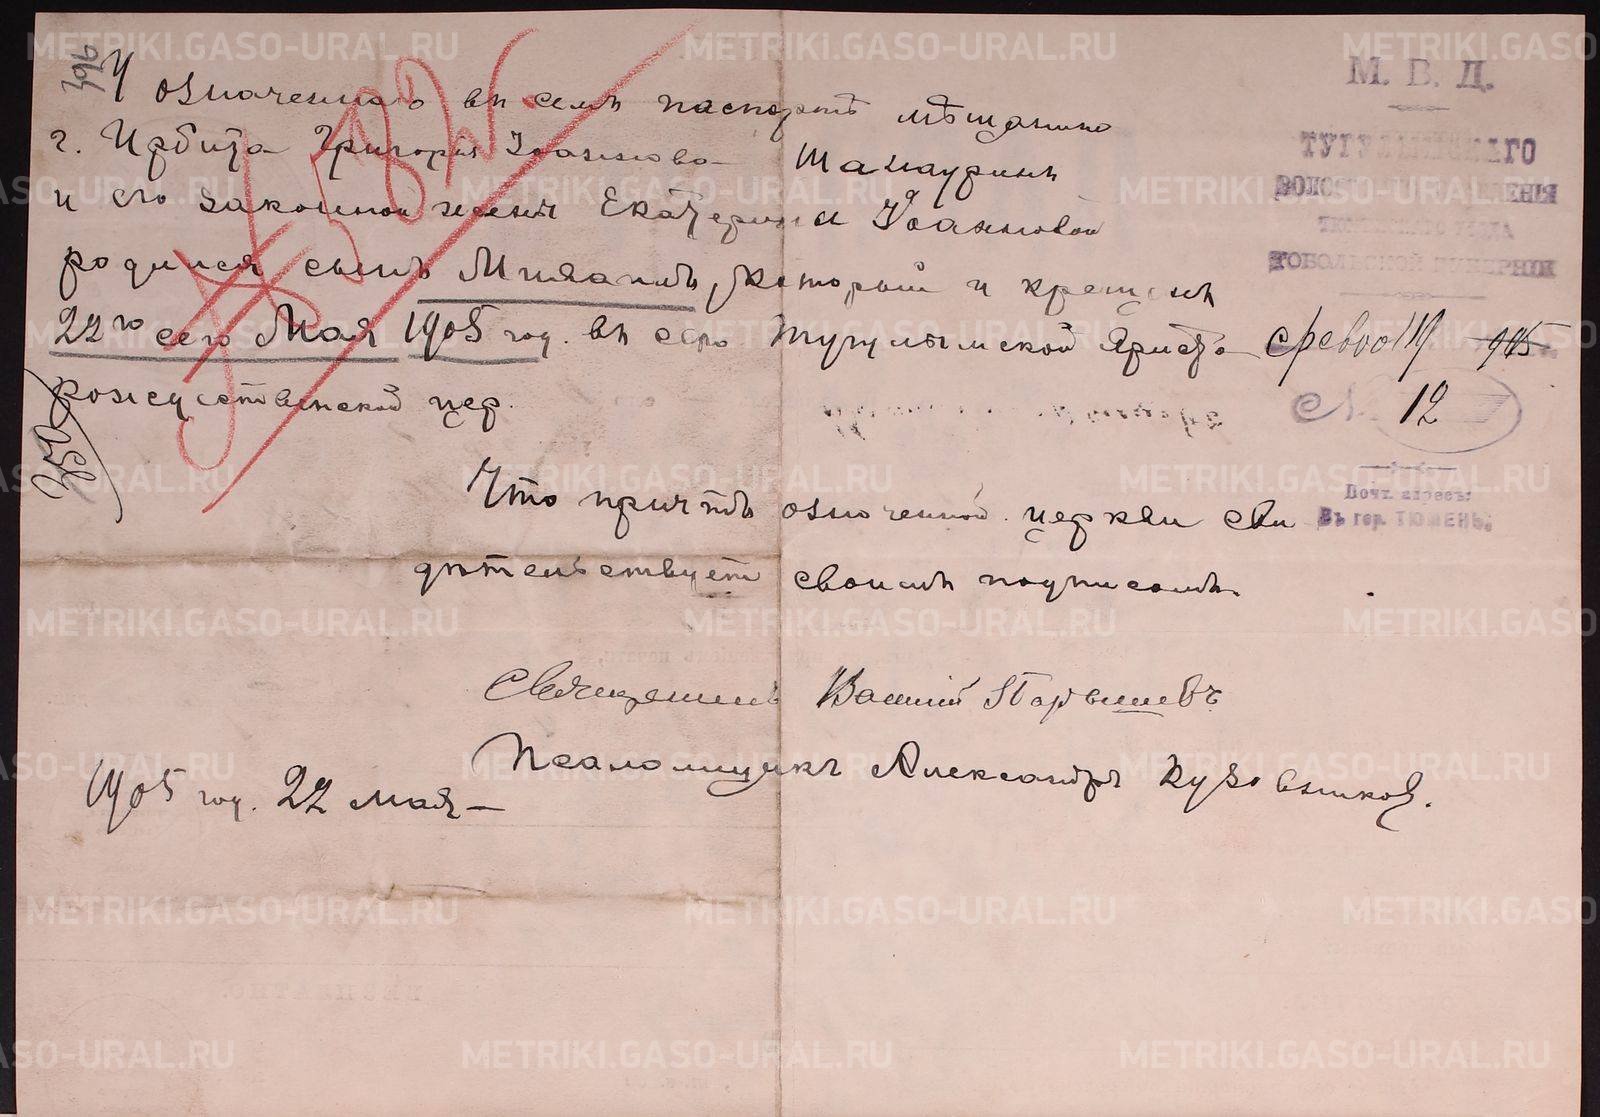 396
У означеннаго въ семъ паспортѣ мѣщанина
г. Ирбита Григорія Іоаннова Шамаурина
и его законной жены Екатерины Іоанновой
родился сынъ Михаилъ, который и крещенъ
22го сего Мая 1905 год. въ село Тугулымской Христо
рожедственской цер.
350
Что причтъ означенной церкви сви
дѣтельствуетъ своимъ подписомъ.
Священникъ Василій Парышевъ
Псаломщикъ Александръ Кузовниковъ.
1905 год. 22 мая
М. В. Д.
ТУГУЛЫМСКАГО
ВОЛОСТНОГО ПРАВЛЕНІЯ
ТЮМЕНСКАГО УѢЗДА
ТОБОЛЬСКОЙ ГУБЕРНІИ
905
№ 12
Почт. адресъ:
Въ гор. ТЮМЕНЬ.
БЕЗПЛАТНО.
METRIKI.GASO-URAL.RU